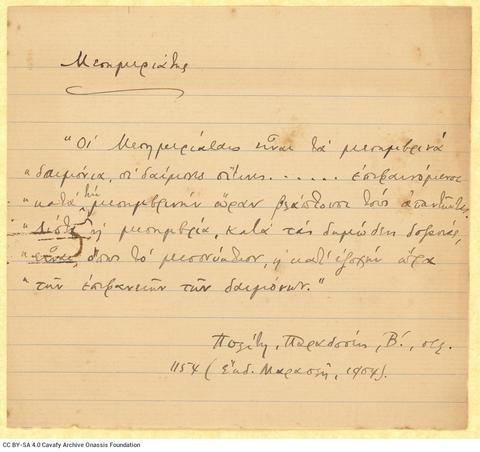 Μεσημεριάτης
"Οἱ Μεσημεριάταις εἶναι τὰ μεσημβρινὰ
"δαιμόνια, οἱ δαίμονες οἵτινες . . . . . . ἐπιφαινόμενοι
"κατὰ τὴν μεσημβρινὴν ὥραν βλάπτουσι τοὺς ἀπαντῶντας.
"Διότι ἡ μεσημβρία, κατὰ τὰς δημώδεις δοξασίας,
"εἶναι, ὅπως τὸ μεσονύκτιον, ἡ κατ' ἐξοχὴν ὥρα
"τῆς ἐπιφανείας τῶν δαιμόνων."
Πολίτη, Παραδόσεις, Β΄., σελ.
1154 (Ἔκδ. Μαρασλῆ, 1904).
CC BY-SA 4.0 Cavafy Archive Onassis Foundation